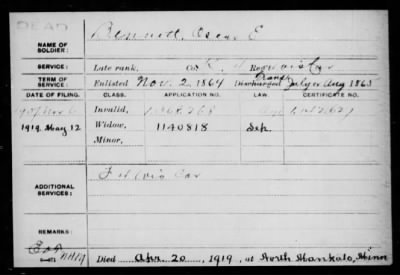 DEAD
NAME OF SOLDIER: Bennett, Oscar E
SERVICE: Late rank, Co. Reg't Wis Cav
TERM OF SERVICE: Enlisted Nov. 2, 1864 Discharged July or Aug 1865
DATE OF FILING. CLASS. APPLICATION NO. LAW. CERTIFICATE NO.
Invalid,
1919 May 12 Widow, 1140818 Sep
Minor,
ADDITIONAL SERVICES: Wis Cav
REMARKS:
Died Apr. 20, 1919, at North Mankato, Minn